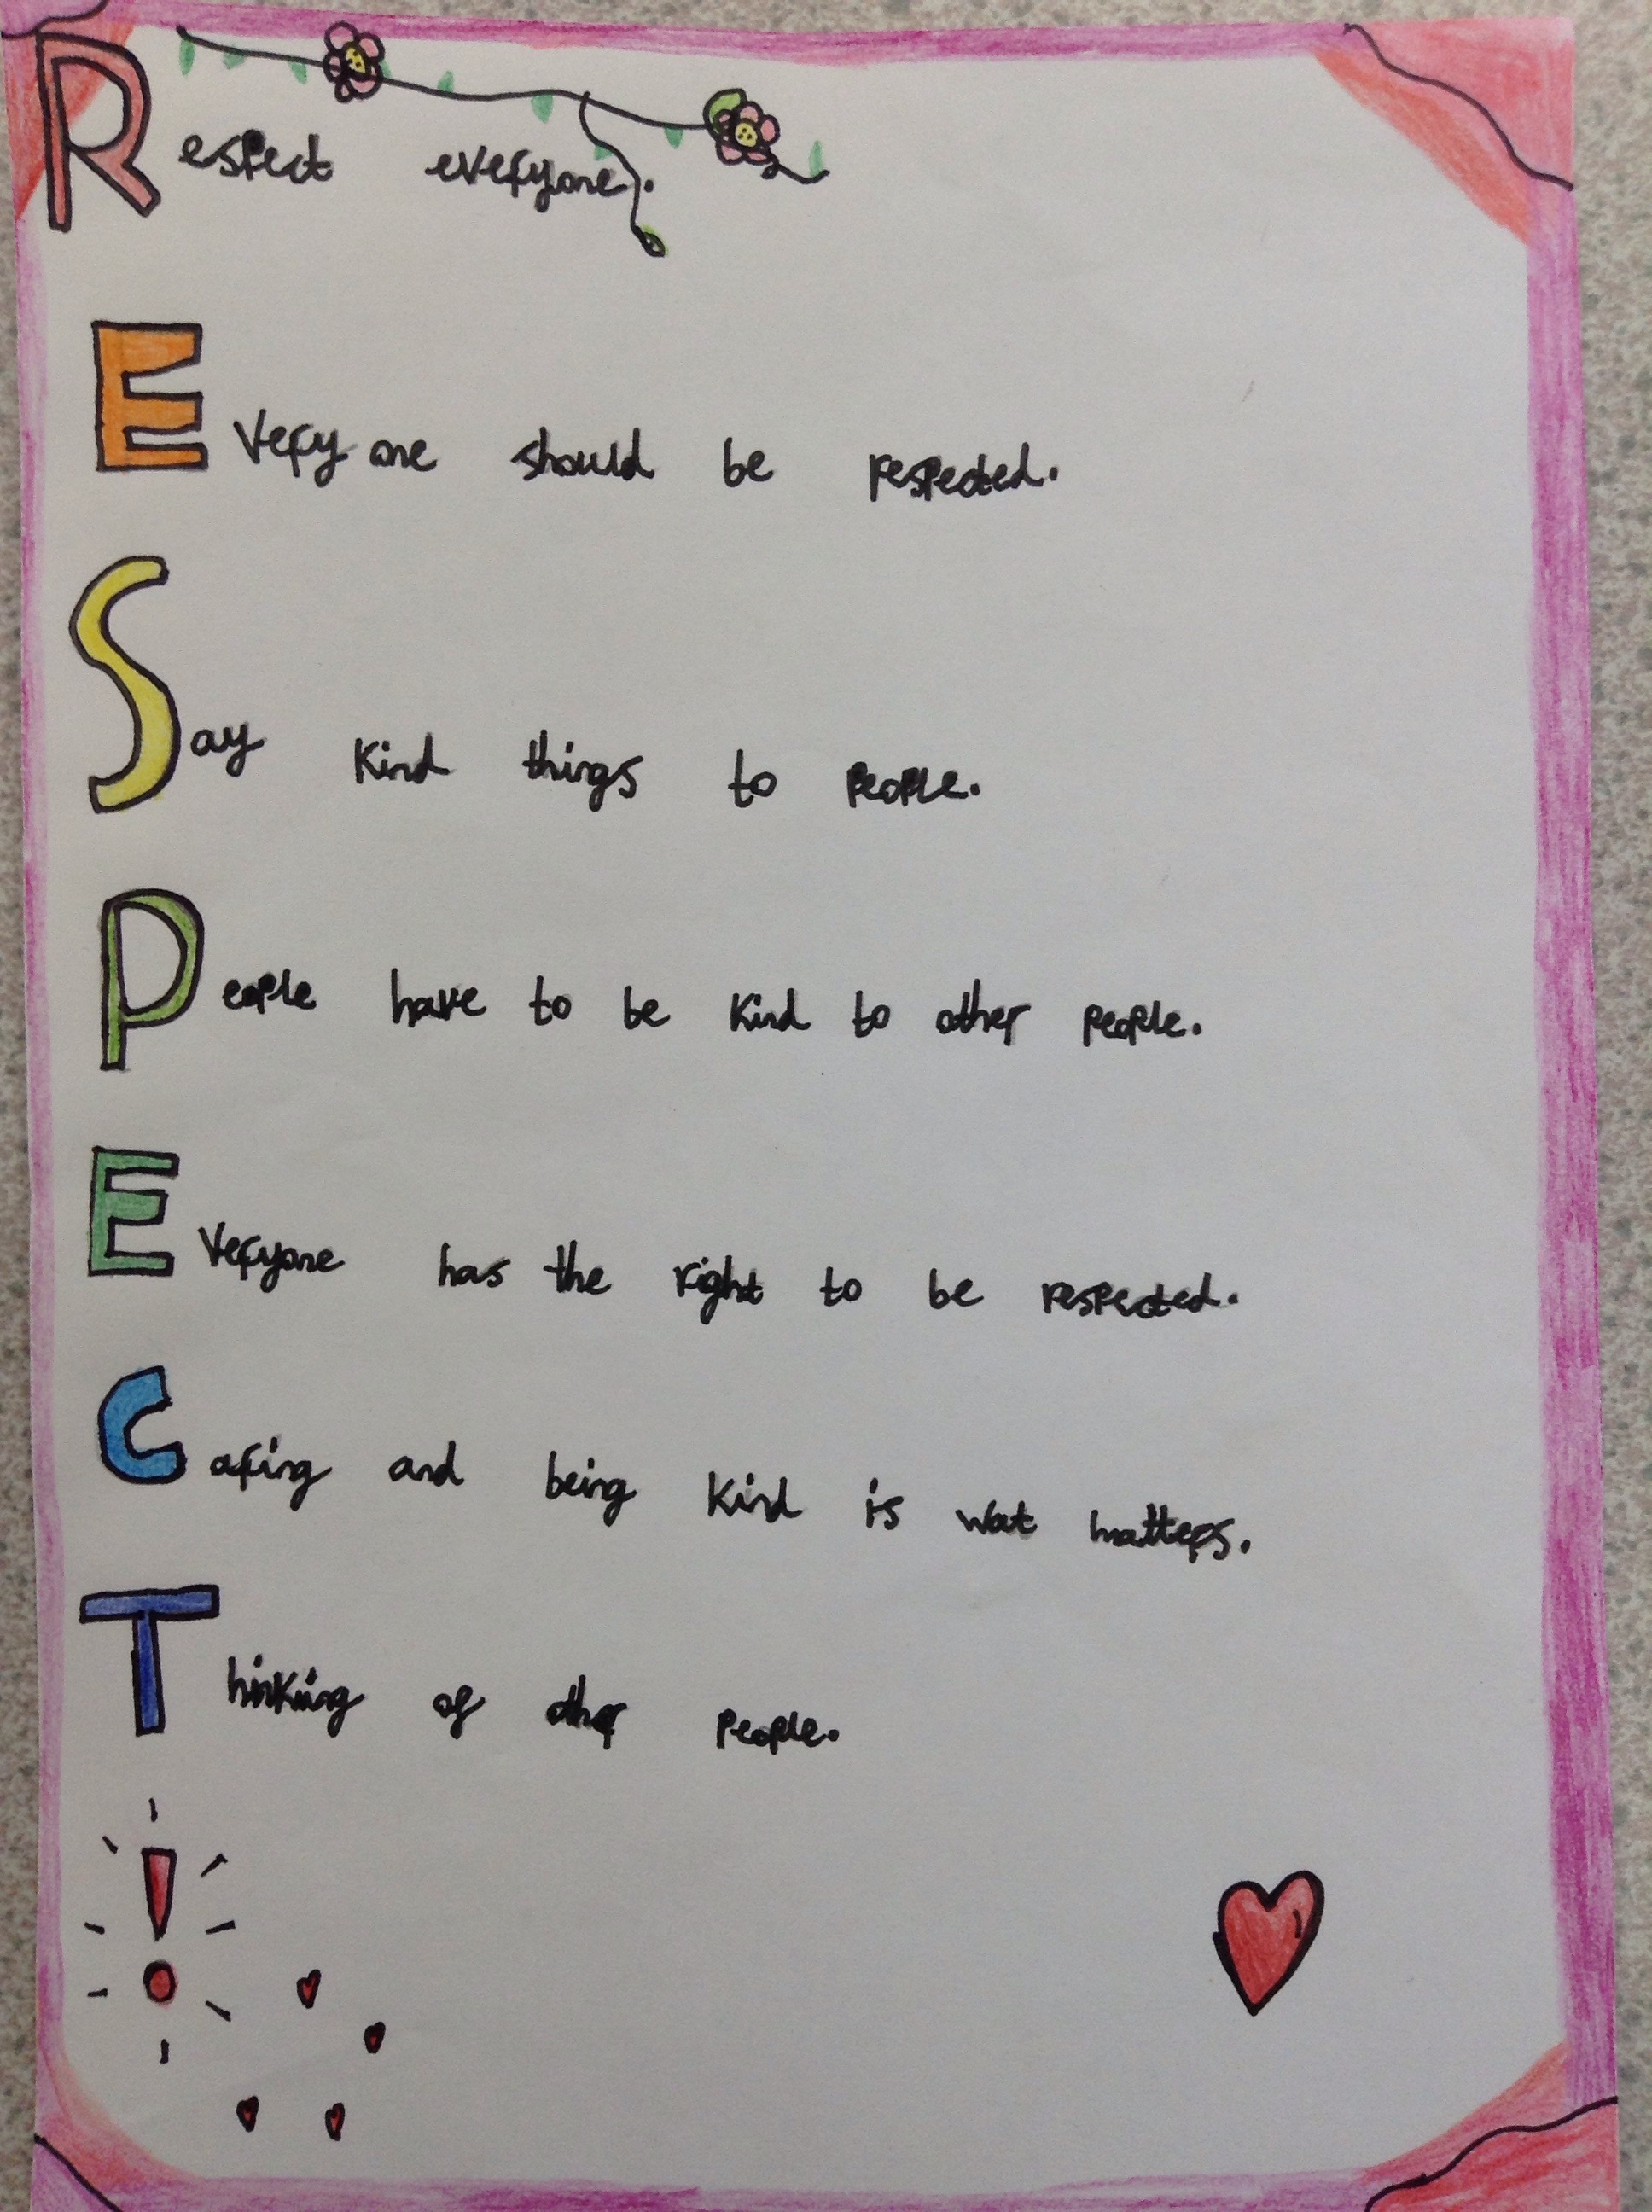 Respect everyone.
Everyone should be respected.
Say kind things to people.
People have to be kind to other people.
Everyone has the right to be respected.
Caring and being kind is wat matters.
Thinking of other people.
!